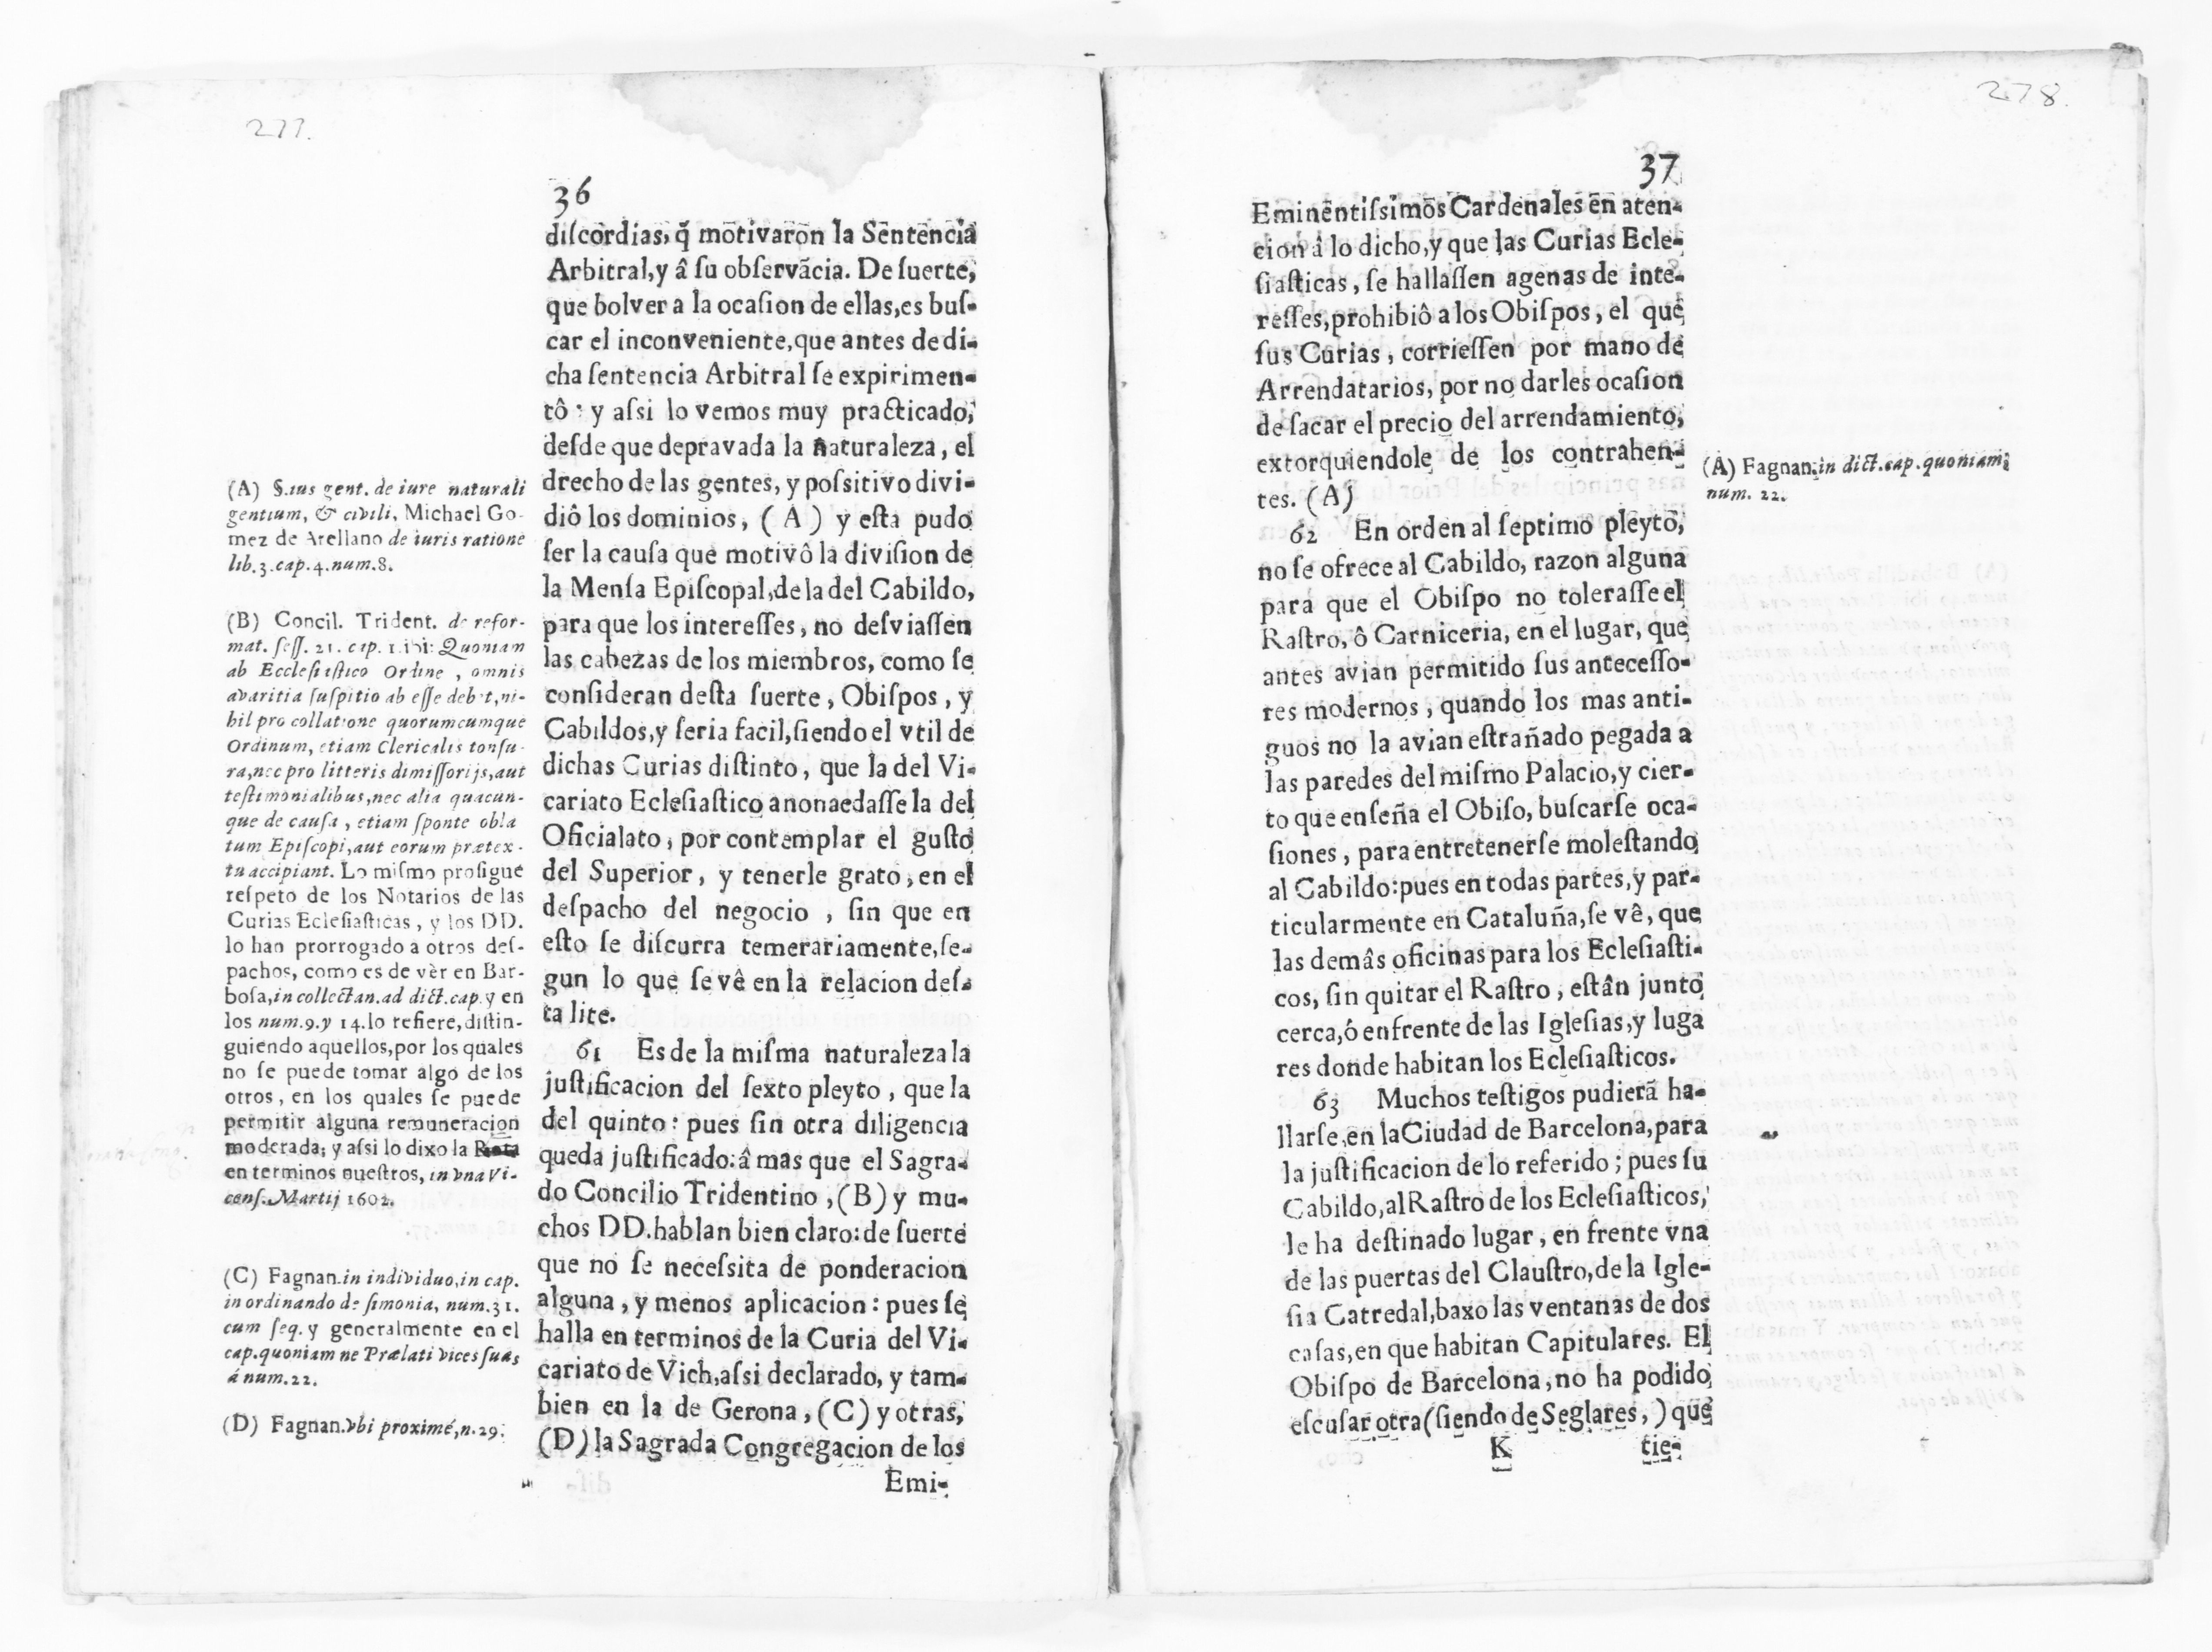 277.
36
diſcordias, q̃ motivaron la Sentencia
Arbitral, y â ſu obſervācia. De ſuerte,
que bolver a la ocaſion de ellas, es buſ-
car el inconveniente, que antes de di-
cha ſentencia Arbitral ſe expirimen-
tô: y aſsi lo vemos muy practicado,
deſde que depravada la naturaleza, el
drecho de las gentes, y poſsitivo divi-
diô los dominios, (A) y eſta pudo
ſer la cauſa que motivô la diviſion de
la Menſa Epiſcopal, de la del Cabildo,
para que los intereſſes, no deſviaſſen
las cabezas de los miembros, como ſe
conſideran deſta ſuerte, Obiſpos, y
Cabildos, y ſeria facil, ſiendo el vtil de
dichas Curias diſtinto, que la del Vi-
cariato Ecleſiaſtico anonaedaſſe la del
Oficialato, por contemplar el guſto
del Superior, y tenerle grato, en el
deſpacho del negocio, ſin que en
eſto ſe diſcurra temerariamente, ſe-
gun lo que ſe vê en la relacion deſ-
ta lite.
61 Es de la miſma naturaleza la
juſtificacion del ſexto pleyto, que la
del quinto: pues ſin otra diligencia
queda juſtificado: â mas que el Sagra-
do Concilio Tridentino, (B) y mu-
chos DD. hablan bien claro: de ſuerte
que no ſe neceſsita de ponderacion
alguna, y menos aplicacion: pues ſe
halla en terminos de la Curia del Vi-
cariato de Vich, aſsi declarado, y tam-
bien en la de Gerona, (C) y otras,
(D) la Sagrada Congregacion de los
Emi-
(A) §. ius gent. de iure naturali
gentium, & civili, Michael Go-
mez de Arellano de iuris ratione
lib. 3. cap. 4. num. 8.
(B) Concil. Trident. de refor-
mat. ſeſſ. 21. cap. 1. ibi: Quoniam
ab Eccleſiaſtico Ordine, omnis
avaritia ſuſpitio ab eſſe debet, ni-
hil pro collatione quorumcumque
Ordinum, etiam Clericalis tonſu-
ra, nec pro litteris dimiſſorijs, aut
teſtimonialibus, nec alia quacun-
que de cauſa, etiam ſponte obla
tum Epiſcopi, aut eorum prætex-
tu accipiant. Lo miſmo proſigue
reſpeto de los Notarios de las
Curias Ecleſiaſticas, y los DD.
lo han prorrogado a otros deſ-
pachos, como es de vèr en Bar-
boſa, in collectan. ad dict. cap. y en
los num. 9. y 14. lo refiere, diſtin-
guiendo aquellos, por los quales
no ſe puede tomar algo de los
otros, en los quales ſe puede
permitir alguna remuneracion
moderada; y aſsi lo dixo la Rota
en terminos nueſtros, in vna Vi-
cenſ. Martij 1602.
(C) Fagnan. in individuo, in cap.
in ordinando de ſimonia, num. 31.
cum ſeq. y generalmente en el
cap. quoniam ne Prælati vices ſuas
á num. 22.
(D) Fagnan. vbi proximé, n. 29.
278.
37
Eminentiſsimos Cardenales en aten-
cion â lo dicho, y que las Curias Ecle-
ſiaſticas, ſe hallaſſen agenas de inte-
reſſes, prohibiô a los Obiſpos, el que
ſus Curias, corrieſſen por mano de
Arrendatarios, por no darles ocaſion
de ſacar el precio del arrendamiento,
extorquiendole de los contrahen-
tes. (A)
62 En orden al ſeptimo pleyto,
no ſe ofrece al Cabildo, razon alguna
para que el Obiſpo no toleraſſe el
Raſtro, ô Carniceria, en el lugar, que
antes avian permitido ſus anteceſſo-
res modernos, quando los mas anti-
guos no la avian eſtrañado pegada a
las paredes del miſmo Palacio, y cier-
to que enſeña el Obiſo, buſcarſe oca-
ſiones, para entretenerſe moleſtando
al Cabildo: pues en todas partes, y par-
ticularmente en Cataluña, ſe vê, que
las demâs oficinas para los Ecleſiaſti-
cos, ſin quitar el Raſtro, eſtân junto
cerca, ó enfrente de las Igleſias, y luga
res donde habitan los Ecleſiaſticos.
63 Muchos teſtigos pudierā ha-
llarſe, en la Ciudad de Barcelona, para
la juſtificacion de lo referido; pues ſu
Cabildo, al Raſtro de los Ecleſiaſticos,
le ha deſtinado lugar, en frente vna
de las puertas del Clauſtro, de la Igle-
ſia Catredal, baxo las ventanas de dos
caſas, en que habitan Capitulares. El
Obiſpo de Barcelona, no ha podido
eſcuſar otra (ſiendo de Seglares,) que
K tie-
(A) Fagnan. in dict. cap. quoniam,
num. 22.